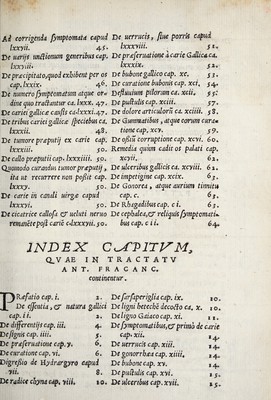 Ad corrigenda symptomata caput
lxxvii. 45.
De varijs unctionum generibus cap.
lxxviii. 45.
De præcipitato, quod exhibent per os
cap. lxxix. 46.
De numero symptomatum atque or-
dine quo tractantur ca. lxxx. 47.
De cariei gallicæ causis ca. lxxxi. 47.
De tribus cariei gallicæ speciebus ca.
lxxxii. 48.
De tumore præputij ex carie cap.
lxxxiii. 50.
De callo præputij cap. lxxxiiii. 50.
Quomodo curandus tumor præputij,
ita ut recurrere non possit cap.
lxxxv. 50.
De carie in canali virgæ caput
lxxxvi. 50.
De cicatrice callosa, & veluti nervo
remanente post carie cap. lxxxvii. 50.
De verrucis, sive porris caput
lxxxviii. 52.
De præservatione à carie Gallica ca.
lxxxix. 52.
De bubone gallico cap. xc. 53.
De curatione bubonis cap. xci. 54.
Defluvium pilorum ca. xcii. 55.
De pustulis cap. xciii. 57.
De dolore articulorū ca. xciiii. 58.
De Gummatibus, atque eorum cura-
tione cap. xcv. 59.
De ossiū corruptione cap. xcvi. 60.
Remedia quàm cadit os palati cap.
xcvii. 62.
De ulceribus gallicis ca. xcviii. 62.
De impetigine cap. xcix. 63.
De Gonorea, atque aurium tinnitu
cap. c. 63.
De Rhagadibus cap. c i. 63.
De cephalea, & reliquis symptomati-
bus cap. c ii. 64.
INDEX CAPITVM,
QVAE IN TRACTATV
ANT. FRACANC.
continentur.
PRæfatio cap. i. 2.
De essentia, & natura gallici
cap. ii. 2.
De differentijs cap. iii. 4.
De signis cap. iiii. 5.
De præservatione cap. v. 6.
De curatione cap. vi. 6.
Digressio de Hydrargyro caput
vii. 8.
De radice chyna cap. viii. 10.
De sarsaperiglia cap. ix. 10.
De ligni betechè decocto ca. x. 10.
De ligno Gaiaco cap. xi. 12.
De symptomatibus, & primò de carie
cap. xii. 14.
De verrucis cap. xiii. 14.
De gonorrhœa cap. xiiii. 14.
De bubone cap. xv. 14.
De pustulis cap. xvi. 15.
De ulceribus cap. xvii. 15.